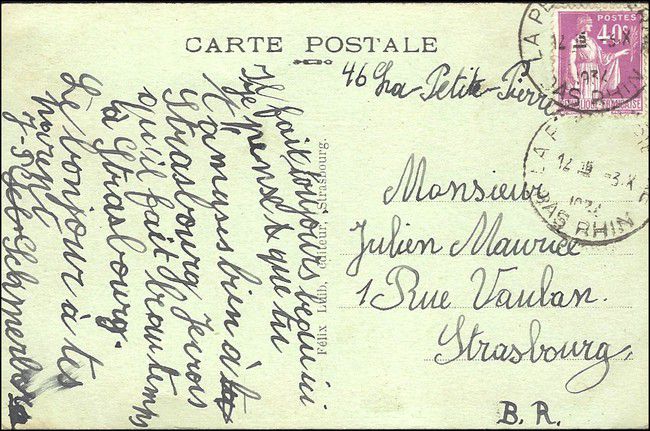 CARTE POSTALE
46 La Petite-Pierre
POSTES
40c
LA PE
14 15 -3.X
1934
BAS RHIN
14 15 -3.X
1934
BAS RHIN
Il fait toujours beau ici
Je pense que tu
t'amuses bien à
Strasbourg. Je crois
qu'il fait beau temps
à Strasbourg.
Le bonjour à tes
parents
Félix Luib, éditeur, Strasbourg.
Monsieur
Julien Maurice
1 Rue Vauban.
Strasbourg,
B. R.